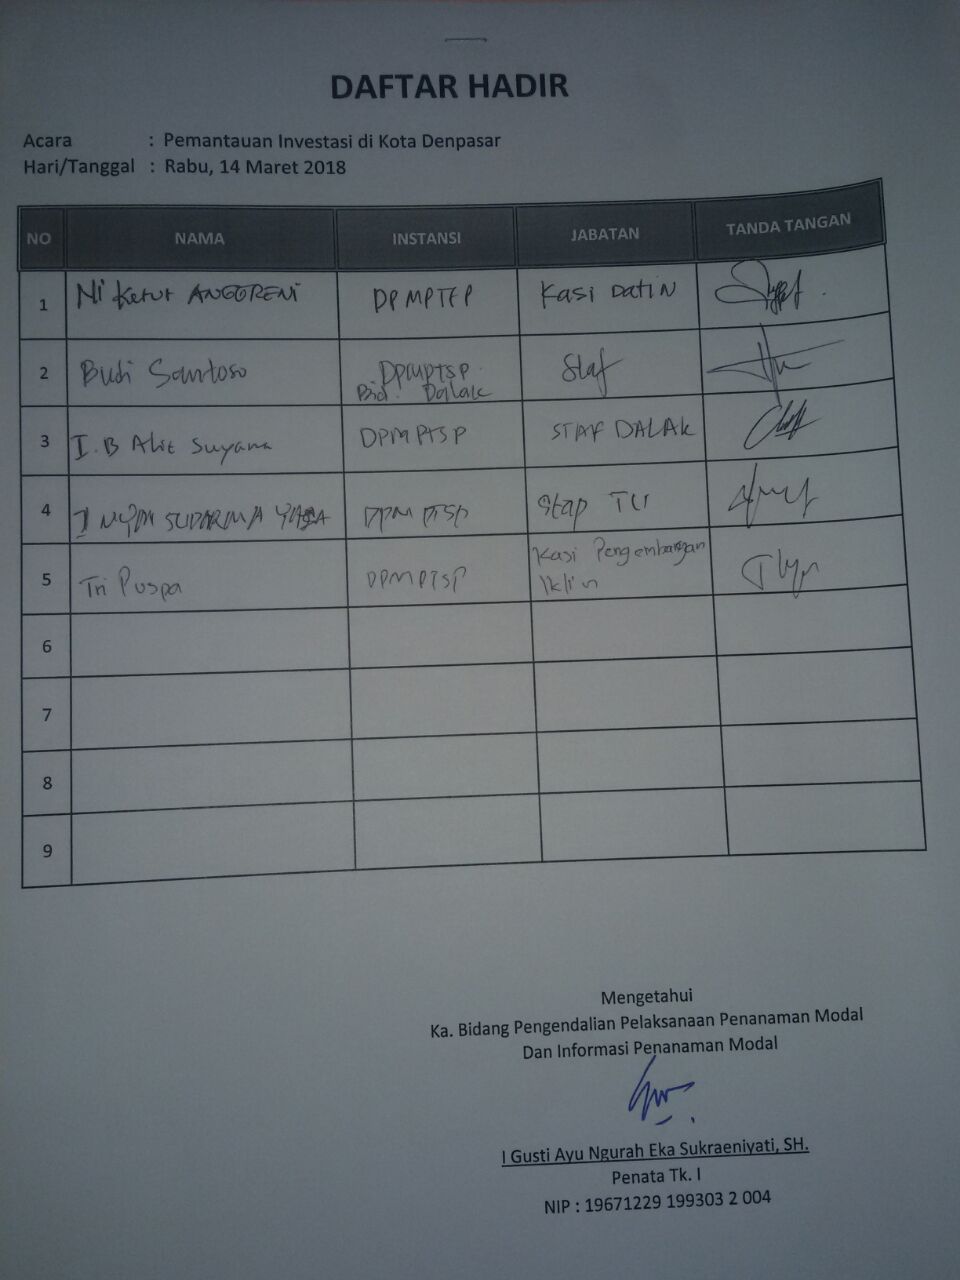 DAFTAR HADIR
Acara : Pemantauan Investasi di Kota Denpasar
Hari/Tanggal : Rabu, 14 Maret 2018
NO NAMA INSTANSI JABATAN TANDA TANGAN
1 Ni Ketut ANGGRENI DPMPTSP Kasi Datin
2 Budi Santoso DPMPTSP Staf
Bid. Dalak
3 I.B Alit Suyana DPMPTSP STAF DALAK
4 I NYM SUDARMA DPMPTSP Stap TU
5 Tri Puspa DPMPTSP Kasi Pengembangan
Iklim
6
7
8
9
Mengetahui
Ka. Bidang Pengendalian Pelaksanaan Penanaman Modal
Dan Informasi Penanaman Modal
I Gusti Ayu Ngurah Eka Sukraeniyati, SH.
Penata Tk. I
NIP : 19671229 199303 2 004